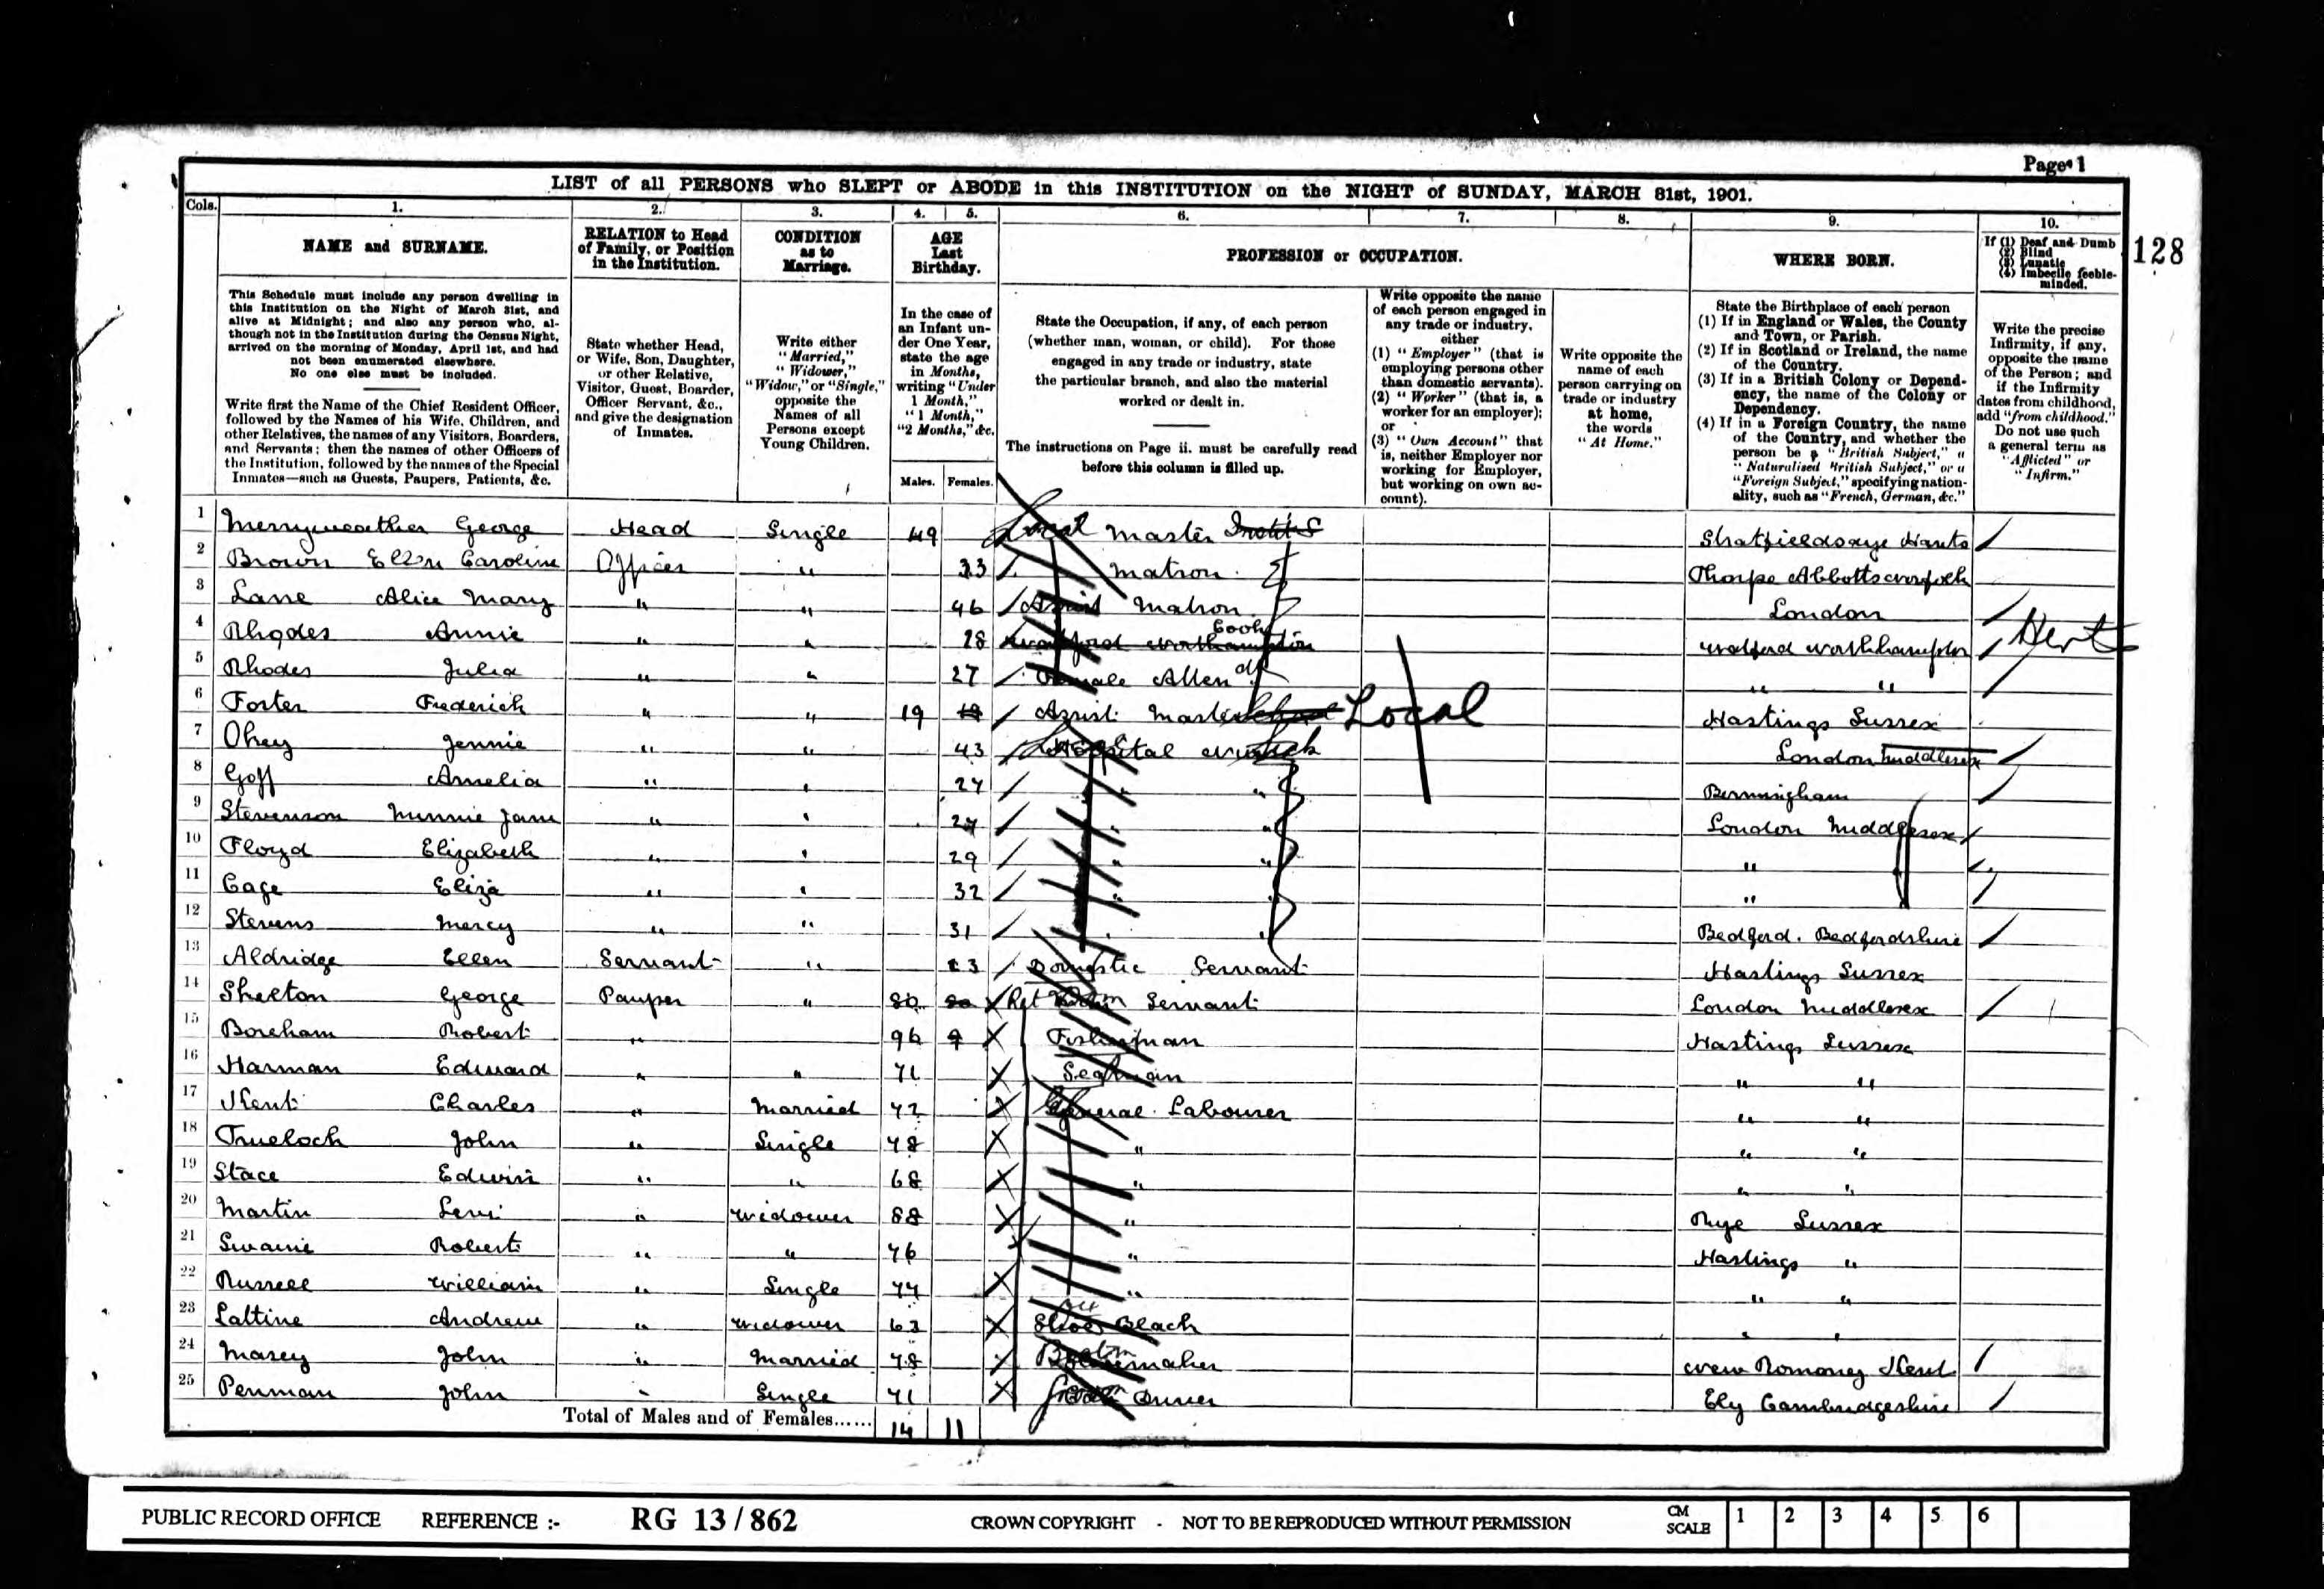 Page 1
LIST of all PERSONS who SLEPT or ABODE in this INSTITUTION on the NIGHT of SUNDAY, MARCH 31st, 1901.
Cols. 1. 2. 3. 4. 5. 6. 7. 8. 9. 10.
128
NAME and SURNAME.
This Schedule must include any person dwelling in
this Institution on the Night of March 31st, and
alive at Midnight; and also any person who, al-
though not in the Institution during the Census Night,
arrived on the morning of Monday, April 1st, and had
not been enumerated elsewhere.
No one else must be included.
Write first the Name of the Chief Resident Officer,
followed by the Names of his Wife, Children, and
other Relatives, the names of any Visitors, Boarders,
and Servants; then the names of other Officers of
the Institution, followed by the names of the Special
Inmates—such as Guests, Paupers, Patients, &c.
RELATION to Head
of Family, or Position
in the Institution.
State whether Head,
or Wife, Son, Daughter,
or other Relative,
Visitor, Guest, Boarder,
Officer Servant, &c.,
and give the designation
of Inmates.
CONDITION
as to
Marriage.
Write either
"Married,"
"Widower,"
"Widow," or "Single,"
opposite the
Names of all
Persons except
Young Children.
AGE
Last
Birthday.
In the case of
an Infant un-
der One Year,
state the age
in Months,
writing "Under
1 Month,"
"1 Month,"
"2 Months," &c.
Males. Females.
PROFESSION or OCCUPATION.
State the Occupation, if any, of each person
(whether man, woman, or child). For those
engaged in any trade or industry, state
the particular branch, and also the material
worked or dealt in.
The instructions on Page ii. must be carefully read
before this column is filled up.
Write opposite the name
of each person engaged in
any trade or industry,
either
(1) "Employer" (that is
employing persons other
than domestic servants).
(2) "Worker" (that is, a
worker for an employer);
or
(3) "Own Account" that
is, neither Employer nor
working for Employer,
but working on own ac-
count).
Write opposite the
name of each
person carrying on
trade or industry
at home,
the words
"At Home."
WHERE BORN.
State the Birthplace of each person
(1) If in England or Wales, the County
and Town, or Parish.
(2) If in Scotland or Ireland, the name
of the Country.
(3) If in a British Colony or Depend-
ency, the name of the Colony or
Dependency.
(4) If in a Foreign Country, the name
of the Country, and whether the
person be a "British Subject," a
"Naturalised British Subject," or a
"Foreign Subject," specifying nation-
ality, such as "French, German, &c."
If (1) Deaf and Dumb
(2) Blind
(3) Lunatic
(4) Imbecile feeble-
minded.
Write the precise
Infirmity, if any,
opposite the name
of the Person; and
if the Infirmity
dates from childhood,
add "from childhood."
Do not use such
a general term as
"Afflicted" or
"Infirm."
1 Merryweather George Head Single 49 Master Stratfieldsaye Hants
2 Brown Ellen Caroline Officer " 33 Matron Thorpe Abbotts Norfolk
3 Lane Alice Mary " " 46 Assist Matron London
4 Rhodes Annie " " 28 Cook Watford Northampton Herts
5 Rhodes Julia " " 27 Female Attend " "
6 Foster Frederick " " 19 Assist. Master Local Hastings Sussex
7 Okey Jennie " " 43 Hospital Nurse London Middlesex
8 Goff Amelia " " 27 " " Birmingham
9 Stevenson Minnie Jane " " 27 " " London Middlesex
10 Floyd Elizabeth " " 29 " " "
11 Cage Eliza " " 32 " " "
12 Stevens Mercy " " 31 " " Bedford. Bedfordshire
13 Aldridge Ellen Servant " 23 Domestic Servant Hastings Sussex
14 Shelton George Pauper " 80 Ret Servant London Middlesex
15 Boreham Robert " 96 Fisherman Hastings Sussex
16 Harman Edward " " 71 Seaman " "
17 Kent Charles " Married 72 General Labourer " "
18 Truelock John " Single 78 " " "
19 Stace Edwin " " 68 " " "
20 Martin Levi " Widower 88 " Rye Sussex
21 Swaine Robert " " 76 " Hastings "
22 Russell William " Single 74 " " "
23 Lattine Andrew " Widower 63 Shoe Black " "
24 Masey John " Married 78 New Romney Kent
25 Penman John " Single 71 Ely Cambridgeshire
Total of Males and of Females...... 14 11
PUBLIC RECORD OFFICE REFERENCE :- RG 13 / 862 CROWN COPYRIGHT - NOT TO BE REPRODUCED WITHOUT PERMISSION CM SCALE 1 2 3 4 5 6